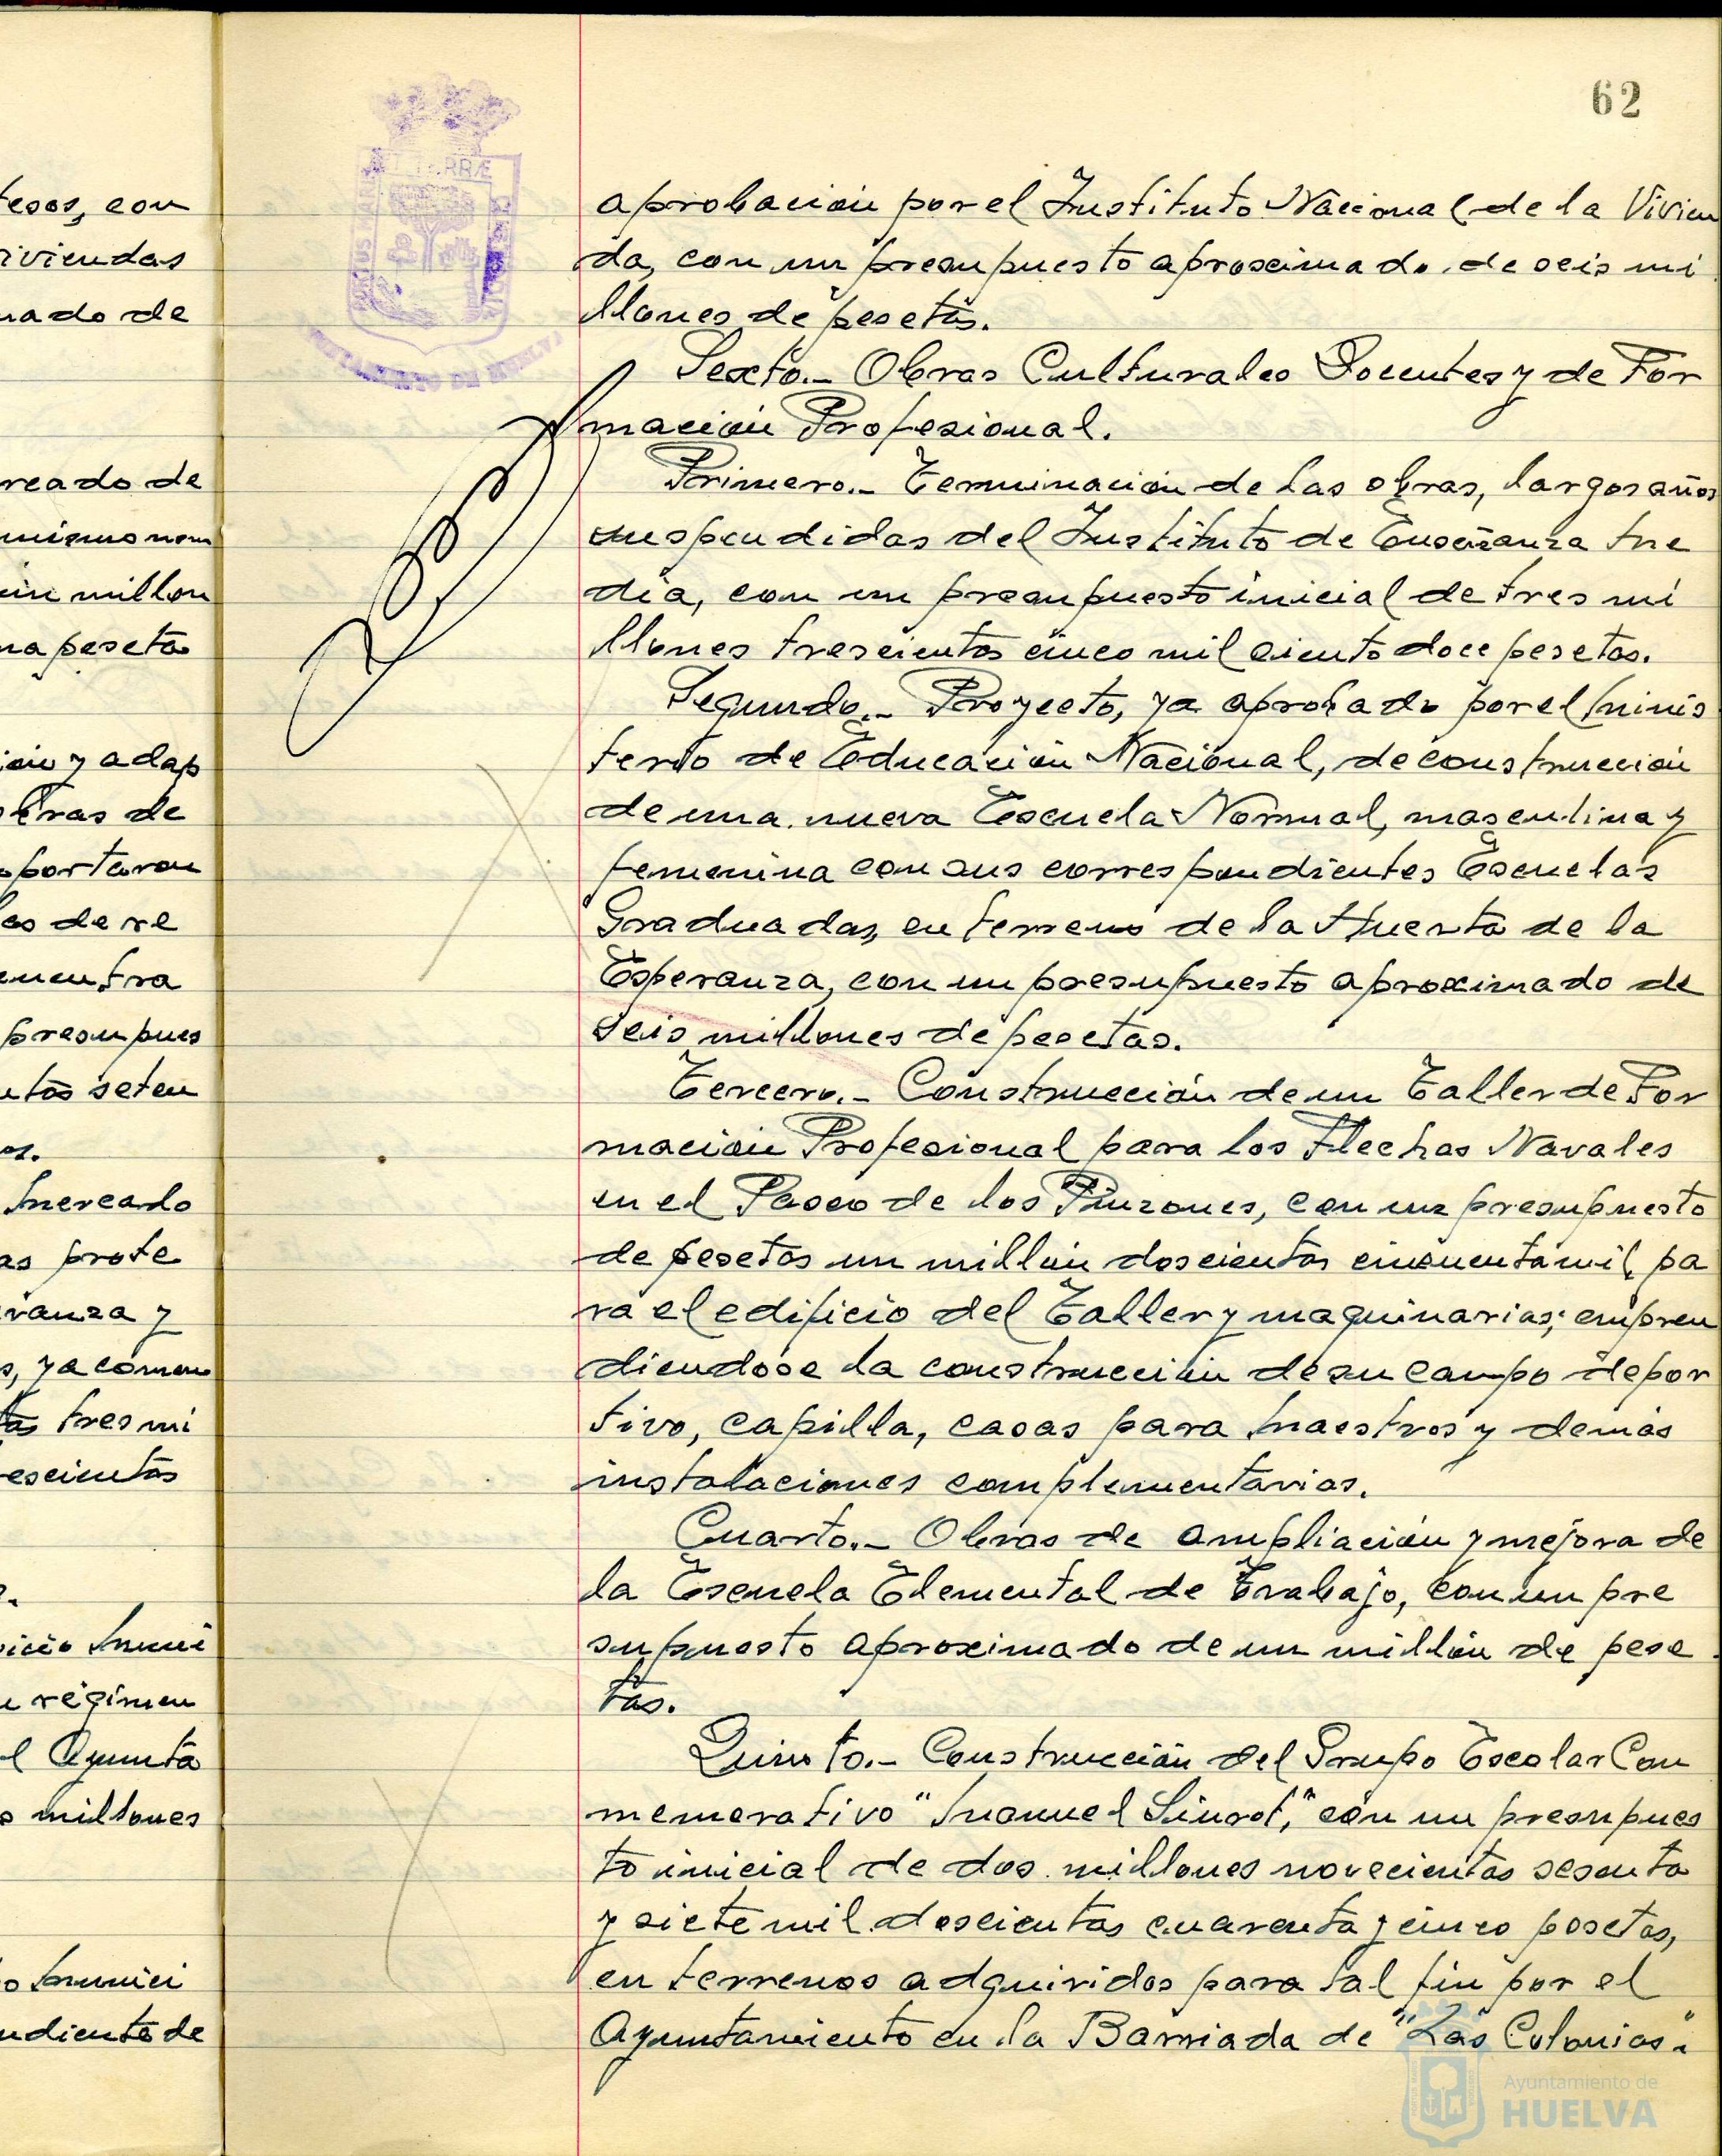 62
aprobación por el Instituto Nacional de la Vivien
da, con un presupuesto aproximado de seis mi
llones de pesetas.
Sexto.- Obras Culturales Docentes y de For
mación Profesional.
Primero.- Terminación de las obras, largos años
suspendidas del Instituto de Enseñanza Me
dia, con un presupuesto inicial de tres mi
llones trescientas cinco mil ciento doce pesetas.
Segundo.- Proyecto, ya aprobado por el Minis
terio de Educación Nacional, de construcción
de una nueva Escuela Normal, masculina y
femenina con sus correspondientes Escuelas
Graduadas, en terreno de la Huerta de la
Esperanza, con un presupuesto aproximado de
seis millones de pesetas.
Tercero.- Construcción de un Taller de For
mación Profesional para los Flechas Navales
en el Paseo de los Pinzones, con un presupuesto
de pesetas un millón doscientas cincuenta mil, pa
ra el edificio del Taller y maquinarias; empren
diendose la construcción de su campo depor
tivo, capilla, casas para Maestros y demás
instalaciones complementarias.
Cuarto.- Obras de ampliación y mejora de
la Escuela Elemental de Trabajo, con un pre
supuesto aproximado de un millón de pese
tas.
Quinto.- Construcción del Grupo Escolar Con
memorativo "Manuel Siurot," con un presupues
to inicial de dos millones novecientas sesenta
y siete mil doscientas cuarenta y cinco pesetas,
en terrenos adquiridos para tal fin por el
Ayuntamiento en la Barriada de "Las Colonias".
tesos, con
viviendas
mado de
reado de
mismo nom
un millon
na peseta
ión y adap
obras de
portaron
es de re
encuentra
presupues
ntas seten
as.
Mercado
as prote
ranza y
s, ya comen
tas tres mi
escientas
icio Muni
u régimen
l Ayunta
s millones
o Munici
ndiente de
AYUNTAMIENTO DE HUELVA
Ayuntamiento de
HUELVA